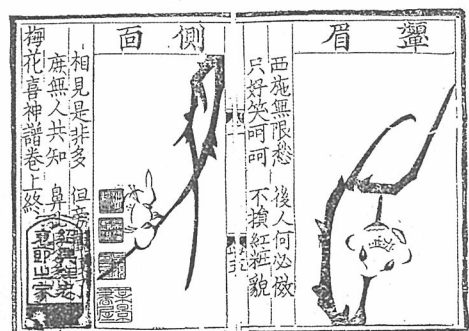 顰眉
西施無限愁 後人何必傚
只好笑呵呵 不損紅粧貌
側面
相見是非多 但
庶無人共知 鼻
梅花喜神譜卷上終